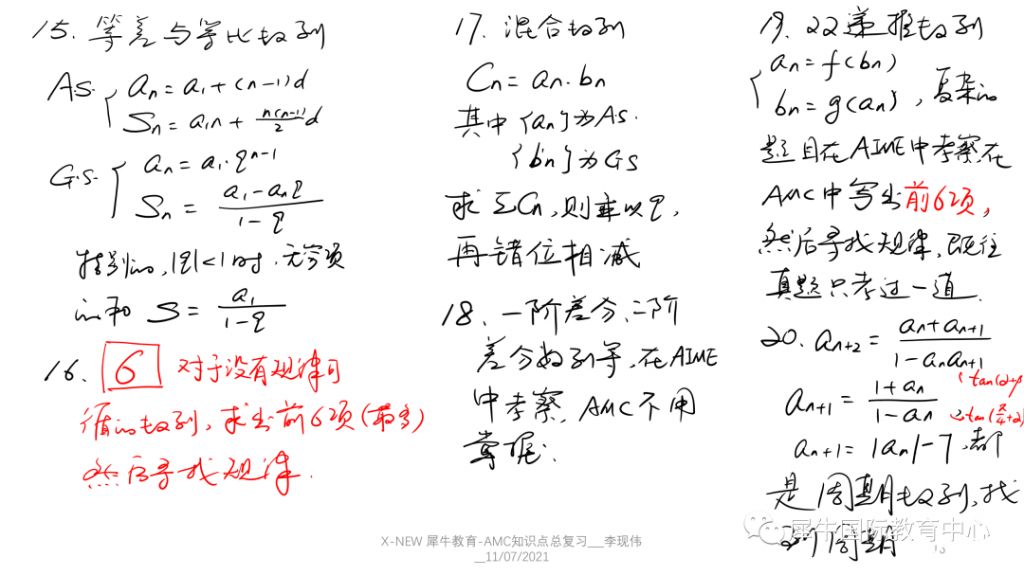 15. 等差与等比数列
A.S. { an = a1 + (n-1)d
Sn = a1n + n(n-1)/2 d
G.S. { an = a1·q^(n-1)
Sn = (a1 - anq)/(1 - q)
特别的, |q|<1时, 无穷项
的和 S = a1/(1 - q)
16. 6 对于没有规律可
循的数列, 求出前6项(最多)
然后寻找规律.
17. 混合数列
Cn = an·bn
其中 {an}为A.s.
{bn}为GS
求ΣCn, 则乘以q,
再错位相减
18. 一阶差分, 二阶
差分数列等, 在AIME
中考察, AMC不用
掌握.
19. 双递推数列
{ an = f(bn)
bn = g(an), 复杂的
题目在AIME中考察, 在
AMC中写出前6项,
然后寻找规律, 既往
真题只考过一道.
20. an+2 = (an + an+1)/(1 - anan+1)
(tan(α+β)
an+1 = (1 + an)/(1 - an)
tan(π/4+α)
an+1 = |an| - 7, 都
是周期数列, 找
到周期
犀牛国际教育中心
X-NEW 犀牛教育-AMC知识点总复习__李现伟
__11/07/2021